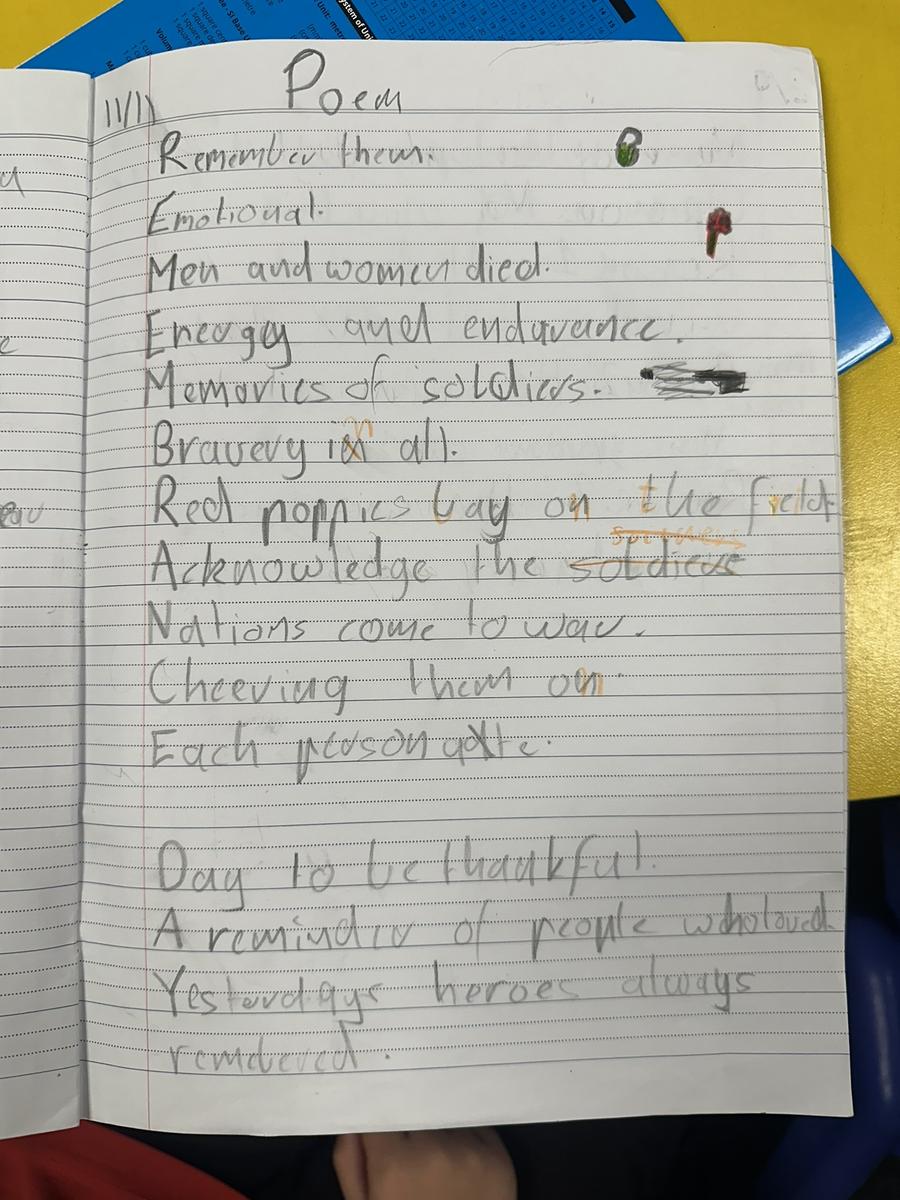 1 square cen
1 square de
1 square me
Volum
System of Uni
Unit: metr
11/11
Poem
Remember them.
Emotional.
Men and women died.
Energy and endurance.
Memories of soldiers.
Bravery in all.
Red poppies lay on the field
Acknowledge the soldiers
Nations come to war.
Cheering them on
Each person
Day to be thankful.
A reminder of people who loved.
Yesterdays heroes always
rembered.